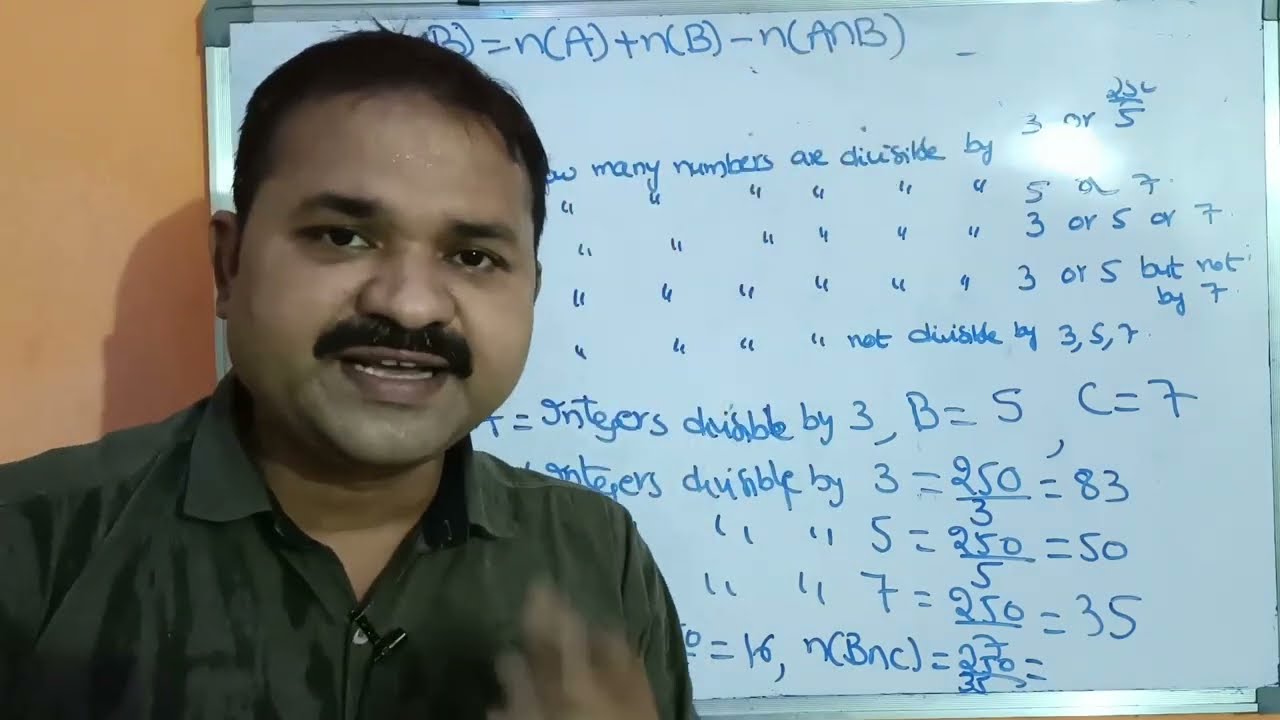 B) = n(A) + n(B) - n(A∩B) -
250
how many numbers are divisible by 3 or 5
" " " " " " 5 or 7.
" " " " " " 3 or 5 or 7.
" " " " " " 3 or 5 but not
by 7.
" " " " not divisible by 3,5,7.
= Integers divisible by 3, B = 5, C = 7
Integers divisible by 3 = 250/3 = 83
" " 5 = 250/5 = 50
" " 7 = 250/7 = 35
= 16, n(B∩C) = 250/35 =